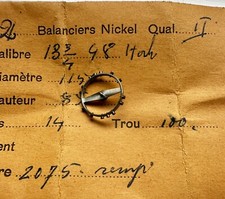 Balanciers Nickel Qual. II
alibre 18 3/4 48 Hou
iamètre 11.
auteur 8
s 14 Trou 100.
ent
re 2075